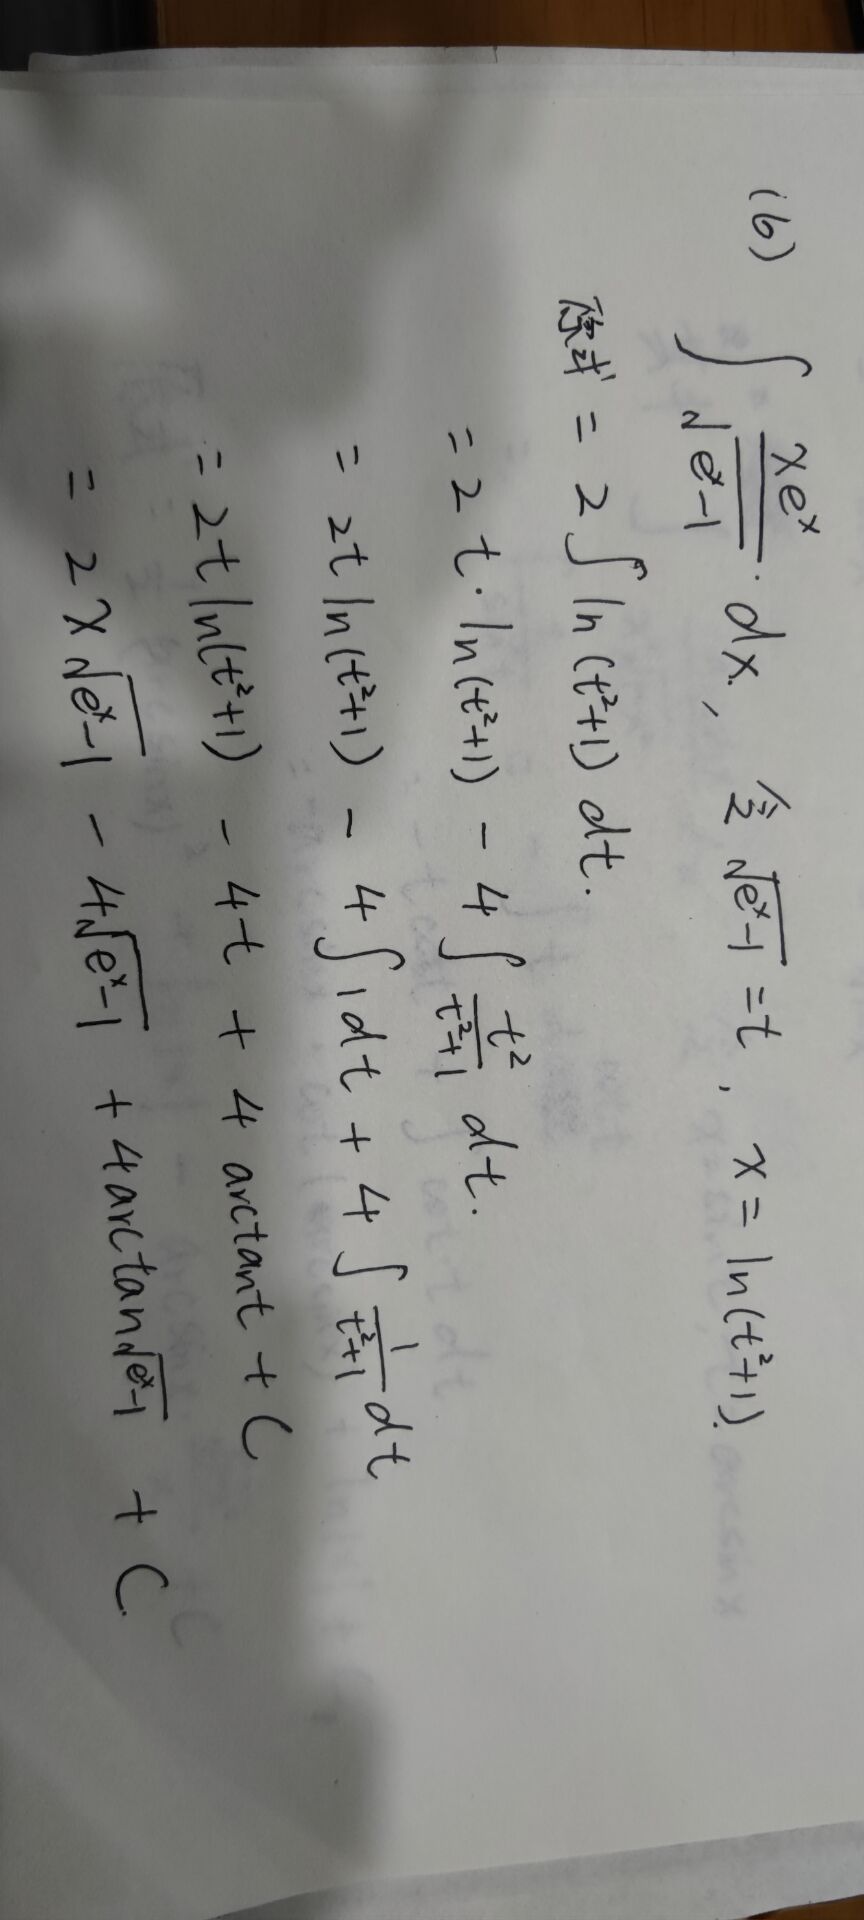 (6) ∫ xeˣ/√(eˣ-1) · dx, 令 √(eˣ-1) = t, x = ln(t²+1).
原式 = 2∫ln(t²+1)dt.
= 2t·ln(t²+1) - 4∫ t²/(t²+1) dt.
= 2t ln(t²+1) - 4∫1dt + 4∫ 1/(t²+1) dt
= 2t ln(t²+1) - 4t + 4 arctant + C
= 2x√(eˣ-1) - 4√(eˣ-1) + 4arctan√(eˣ-1) + C.